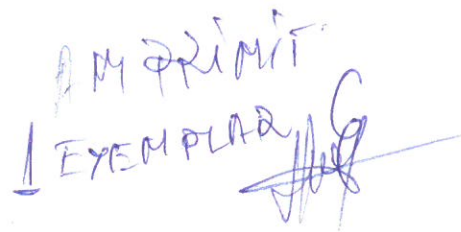 AM PRIMIT
1 EXEMPLAR